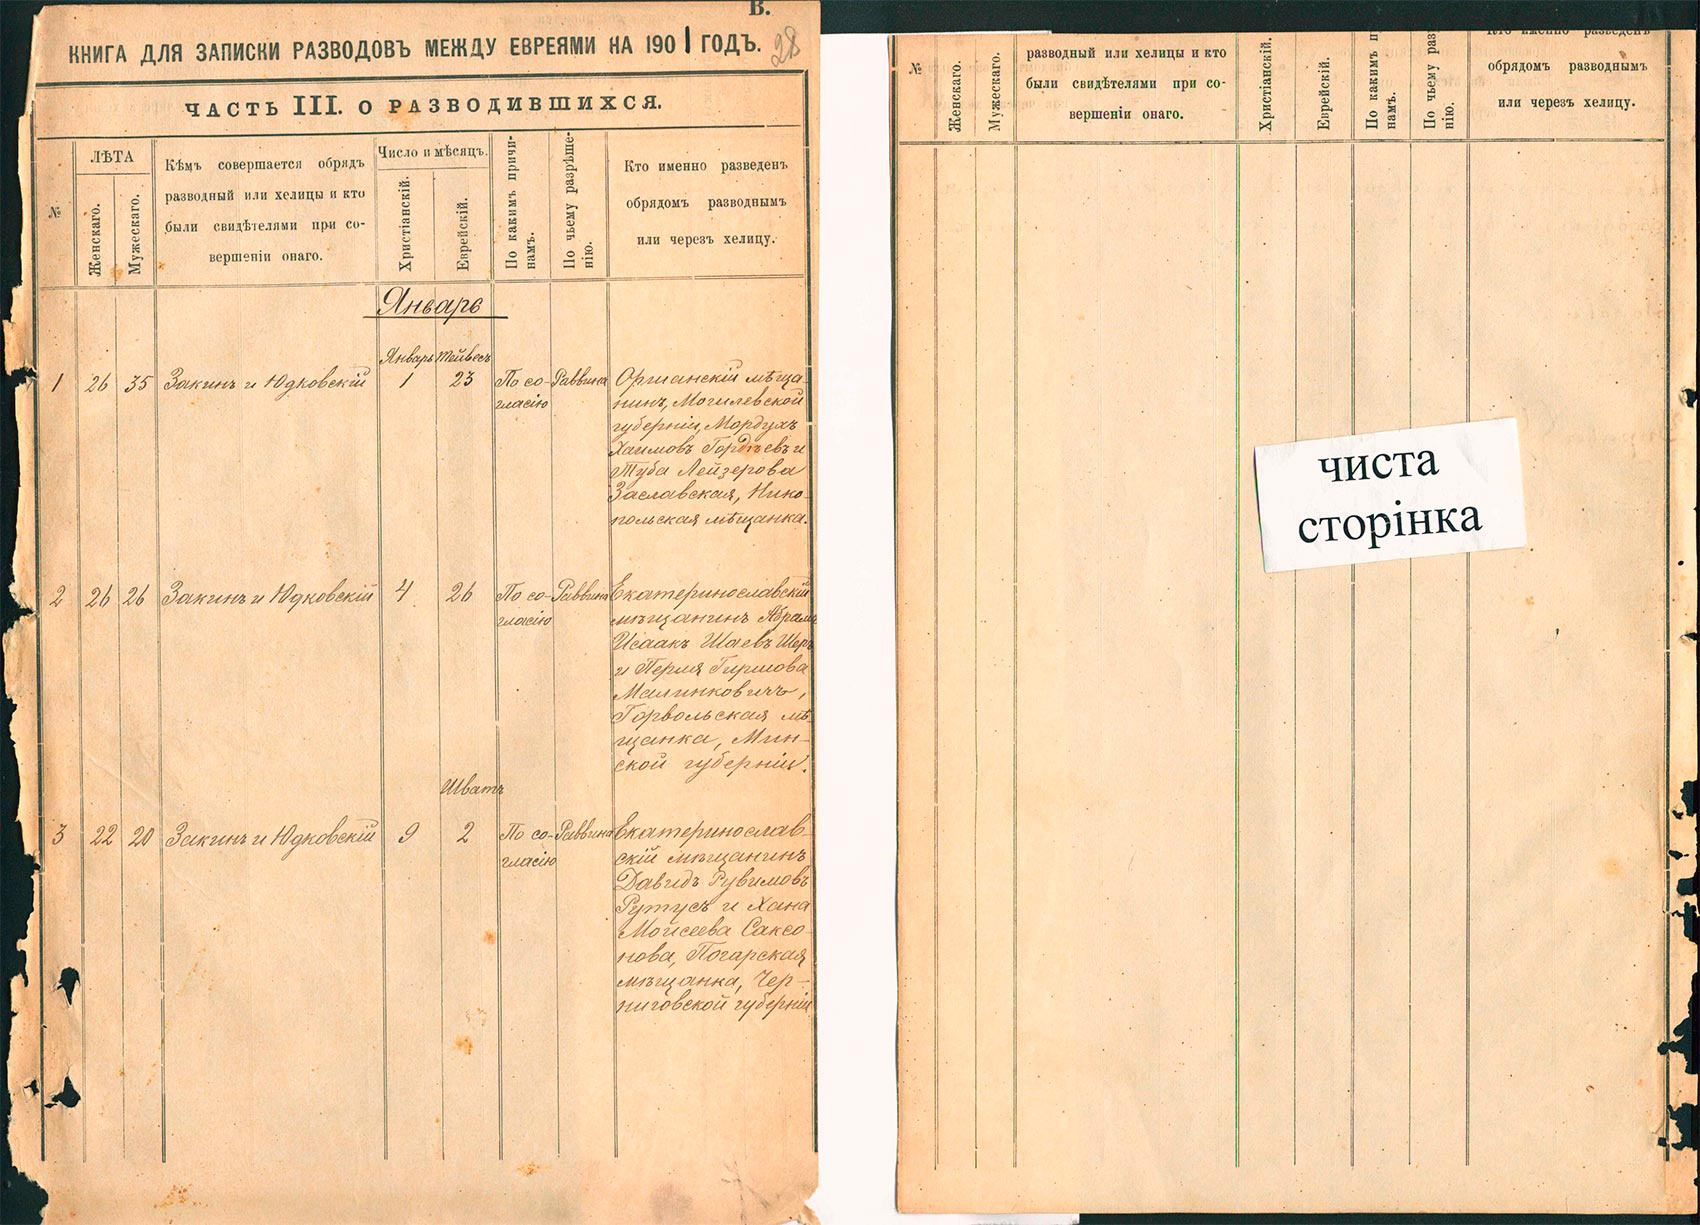 В.
КНИГА ДЛЯ ЗАПИСКИ РАЗВОДОВЪ МЕЖДУ ЕВРЕЯМИ НА 1901 ГОДЪ.
28
ЧАСТЬ III. О РАЗВОДИВШИХСЯ.
№
ЛѢТА
Женскаго.
Мужескаго.
Кѣмъ совершается обрядъ
разводный или хелицы и кто
были свидѣтелями при со-
вершеніи онаго.
Число и мѣсяцъ.
Христіанскій.
Еврейскій.
По какимъ причи-
намъ.
По чьему разрѣше-
нію.
Кто именно разведенъ
обрядомъ разводнымъ
или черезъ хелицу.
Январь
Январь Тейвесъ
1 26 35 Закинъ и Юдковскій 1 23
По со-
гласію
Раввина
Оршанскій мѣща-
нинъ, Могилевской
губерніи, Мордухъ
Хаимовъ Гордѣевъ и
Туба Лейзерова
Заславская, Нико-
польская мѣщанка.
2 26 26 Закинъ и Юдковскій 4 26
По со-
гласію
Раввина
Екатеринославскій
мѣщанинъ Абрамъ
Исаакъ Шаевъ Шеръ
и Перля Гиршова
Малинковичъ,
Горвольская мѣ-
щанка, Мин-
ской губерніи.
Шватъ
3 22 20 Закинъ и Юдковскій 9 2
По со-
гласію
Раввина
Екатеринослав-
скій мѣщанинъ
Давидъ Рувимовъ
Рутусъ и Хана
Моисеева Саксо-
нова, Погарская
мѣщанка, Чер-
ниговской губерніи
№
Женскаго.
Мужескаго.
разводный или хелицы и кто
были свидѣтелями при со-
вершеніи онаго.
Христіанскій.
Еврейскій.
По какимъ п
намъ.
По чьему раз
нію.
Кто именно разведенъ
обрядомъ разводнымъ
или черезъ хелицу.
чиста
сторінка